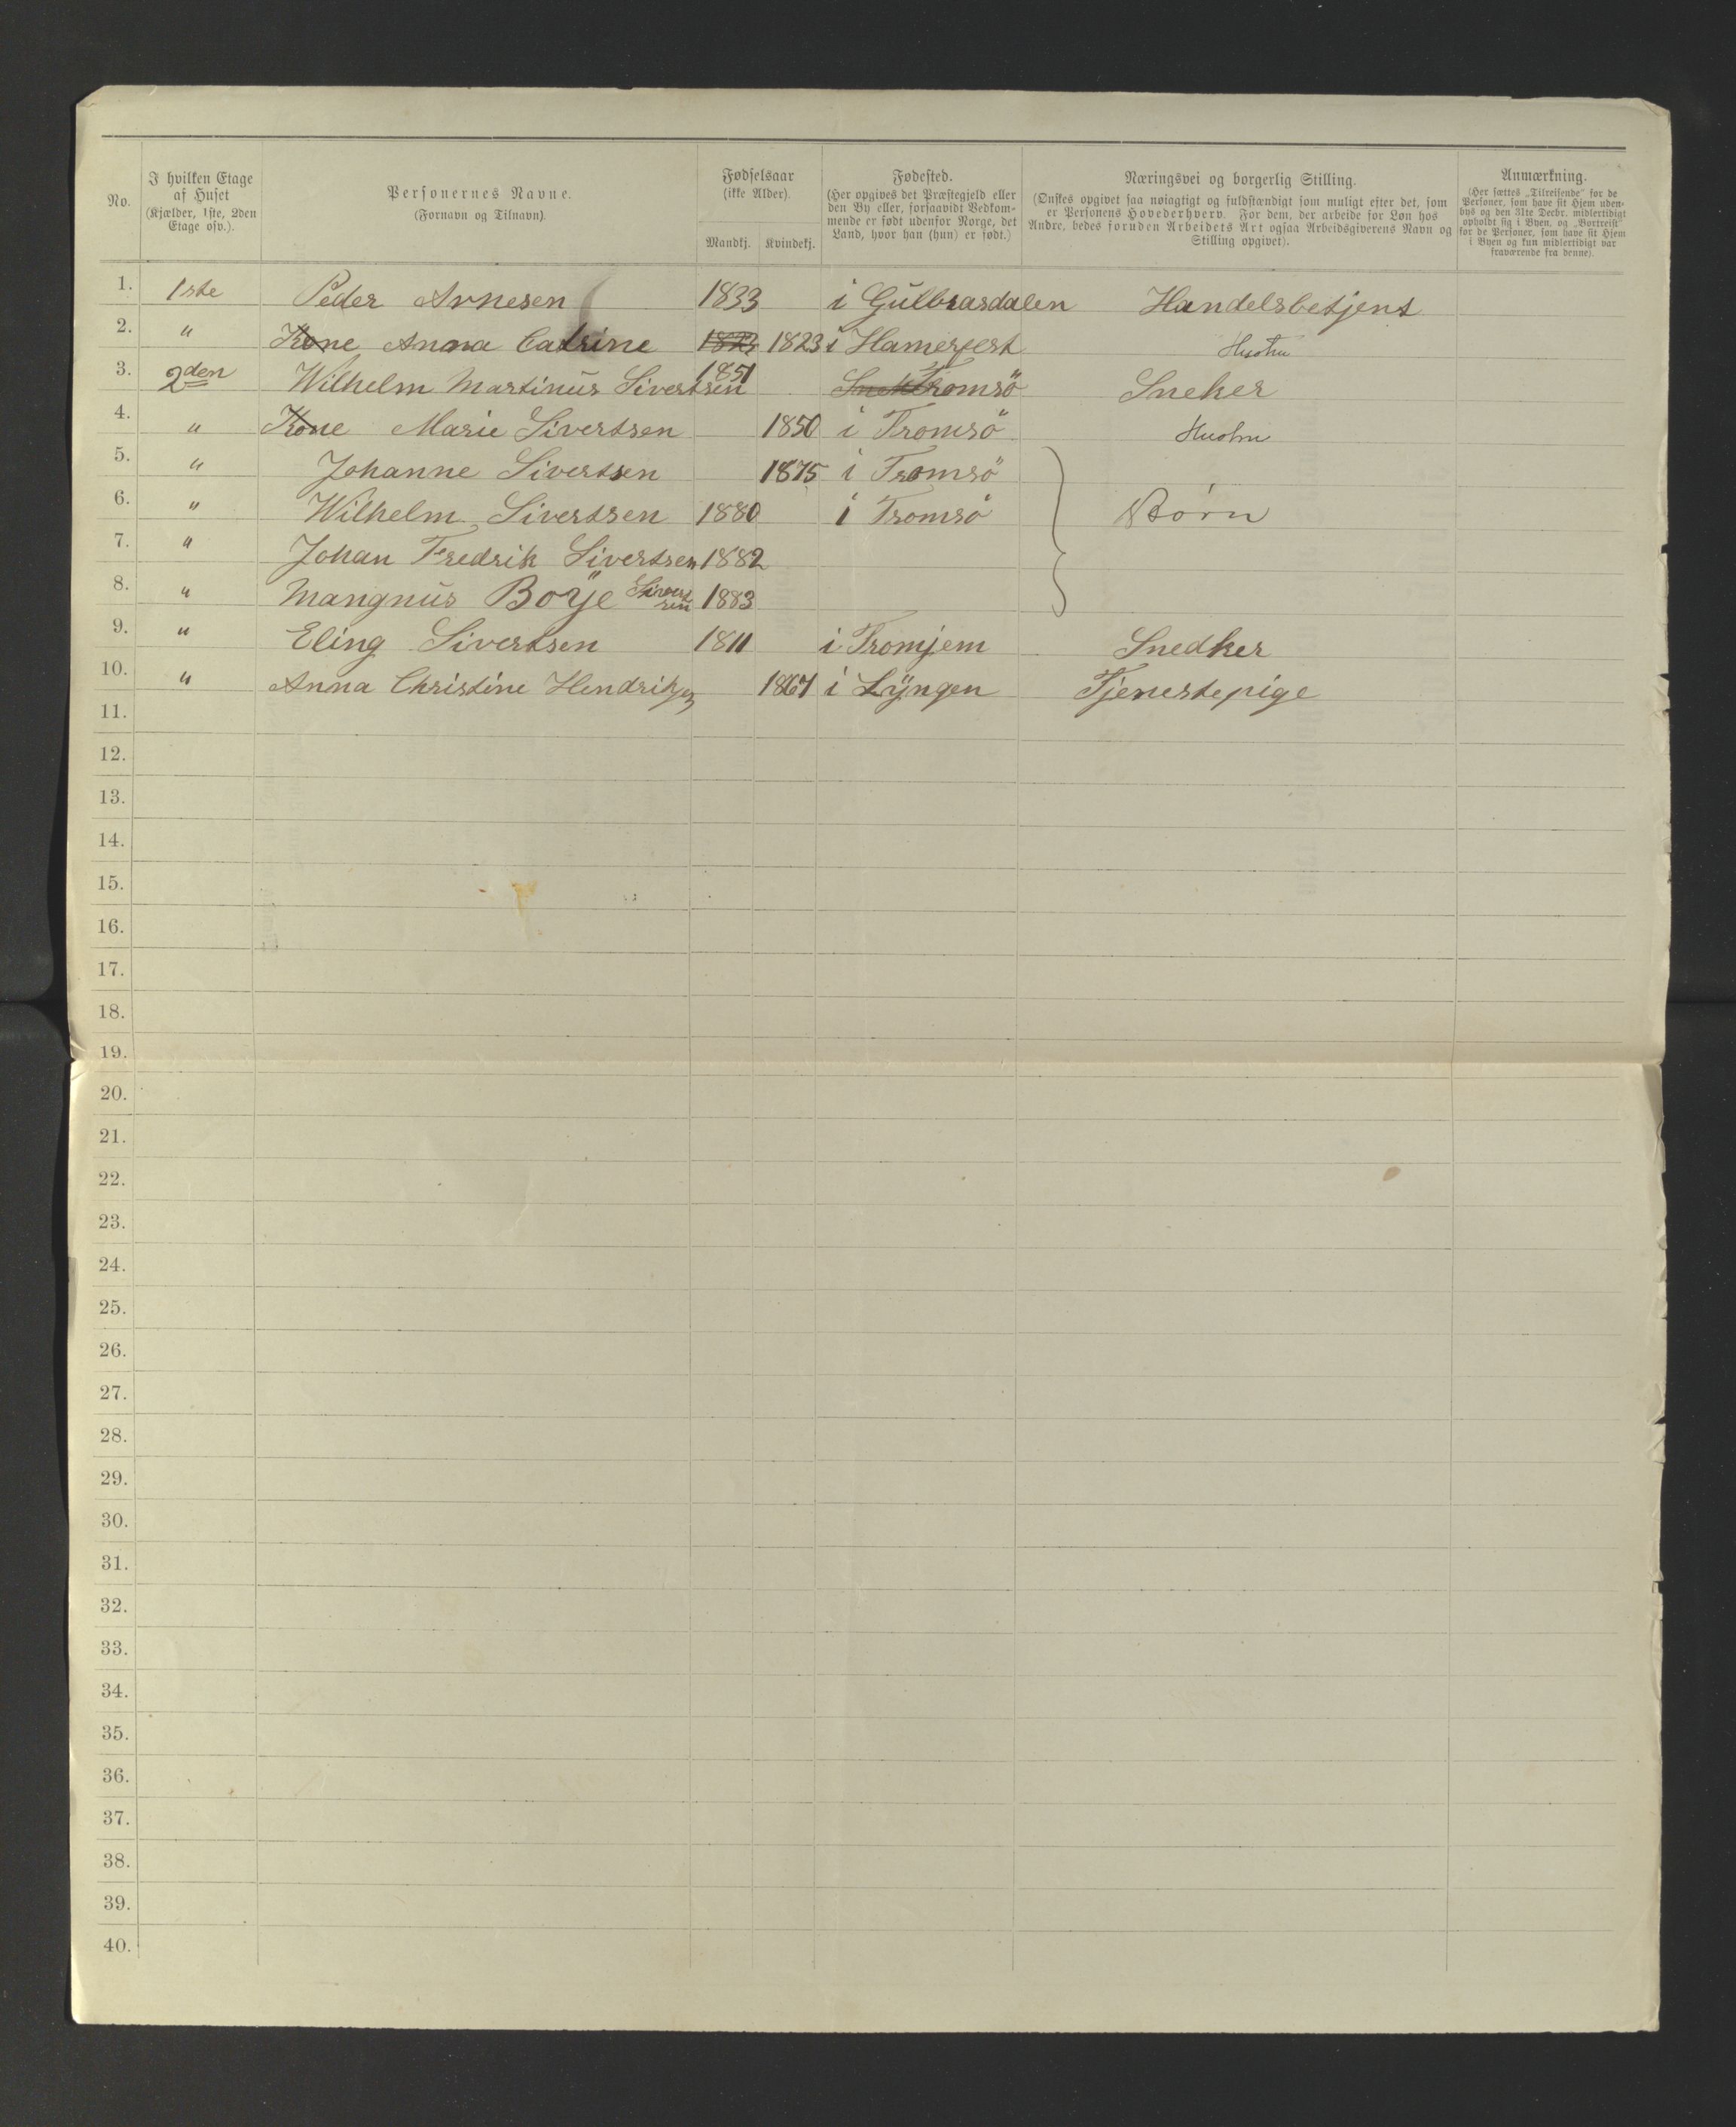 No.
I hvilken Etage
af Huset
(Kjælder, 1ste, 2den
Etage osv.).
Personernes Navne.
(Fornavn og Tilnavn).
Fødselsaar
(ikke Alder).
Mandkj. Kvindekj.
Fødested.
(Her opgives det Præstegjeld eller
den By eller, forsaavidt Vedkom-
mende er født udenfor Norge, det
Land, hvor han (hun) er født.)
Næringsvei og borgerlig Stilling.
(Ønskes opgivet saa nøiagtigt og fuldstændigt som muligt efter det, som
er Personens Hovederhverv. For dem, der arbeide for Løn hos
Andre, bedes foruden Arbeidets Art ogsaa Arbeidsgiverens Navn og
Stilling opgivet).
Anmærkning.
(Her sættes „Tilreisende" for de
Personer, som have sit Hjem uden-
bys og den 31te Decbr. midlertidigt
opholdt sig i Byen, og „Bortreist"
for de Personer, som have sit Hjem
i Byen og kun midlertidigt var
fraværende fra denne).
1. 1ste Peder Arnesen 1833 i Gulbrasdalen Handelsbetjent
2. " Kone Anna Catrine 1823 1823 i Hamerfest Hustru
3. 2den Wilhelm Martinus Sivertsen 1851 Tromsö Sneker
4. " Kone Marie Sivertsen 1850 i Tromsö Hustru
5. " Johanne Sivertsen 1875 i Tromsö
6. " Wilhelm Sivertsen 1880 i Tromsö Børn
7. " Johan Fredrik Sivertsen 1882
8. " Mangnus Boye Sivertsen 1883
9. " Eling Sivertsen 1811 i Tromjem Snedker
10. " Anna Christine Hendriksen 1867 i Lyngen Tjenestepige
11.
12.
13.
14.
15.
16.
17.
18.
19.
20.
21.
22.
23.
24.
25.
26.
27.
28.
29.
30.
31.
32.
33.
34.
35.
36.
37.
38.
39.
40.